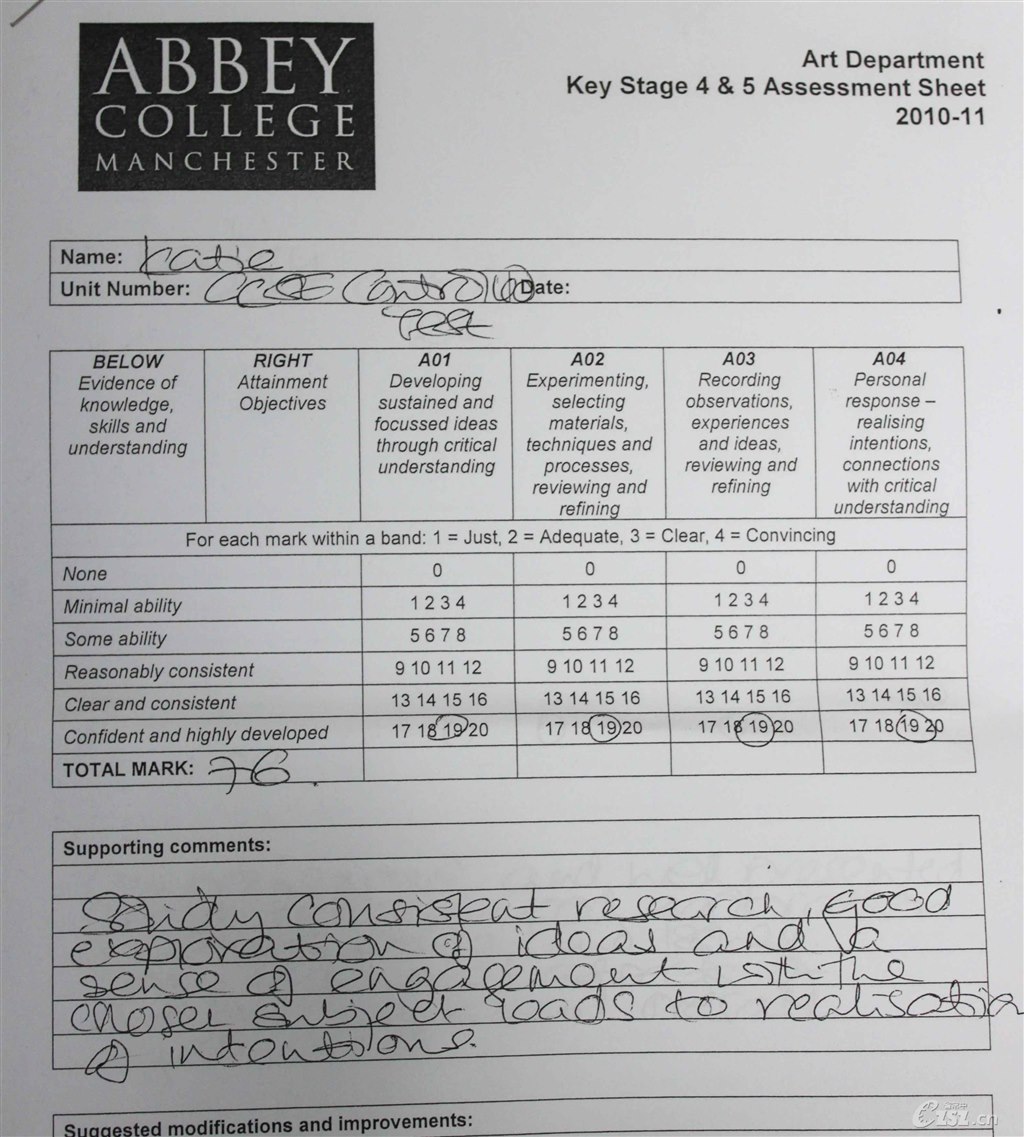 ABBEY
COLLEGE
MANCHESTER
Art Department
Key Stage 4 & 5 Assessment Sheet
2010-11
Name: Katie
Unit Number: Controlled Date:
Test
BELOW RIGHT A01 A02 A03 A04
Evidence of Attainment Developing Experimenting, Recording Personal
knowledge, Objectives sustained and selecting observations, response –
skills and focussed ideas materials, experiences realising
understanding through critical techniques and and ideas, intentions,
understanding processes, reviewing and connections
reviewing and refining with critical
refining understanding
For each mark within a band: 1 = Just, 2 = Adequate, 3 = Clear, 4 = Convincing
None 0 0 0 0
Minimal ability 1 2 3 4 1 2 3 4 1 2 3 4 1 2 3 4
Some ability 5 6 7 8 5 6 7 8 5 6 7 8 5 6 7 8
Reasonably consistent 9 10 11 12 9 10 11 12 9 10 11 12 9 10 11 12
Clear and consistent 13 14 15 16 13 14 15 16 13 14 15 16 13 14 15 16
Confident and highly developed 17 18 19 20 17 18 19 20 17 18 19 20 17 18 19 20
TOTAL MARK: 76.
Supporting comments:
consistent research, good
exploration of ideas and a
sense of engagement with the
chosen subject leads to realisation
of intentions.
Suggested modifications and improvements: